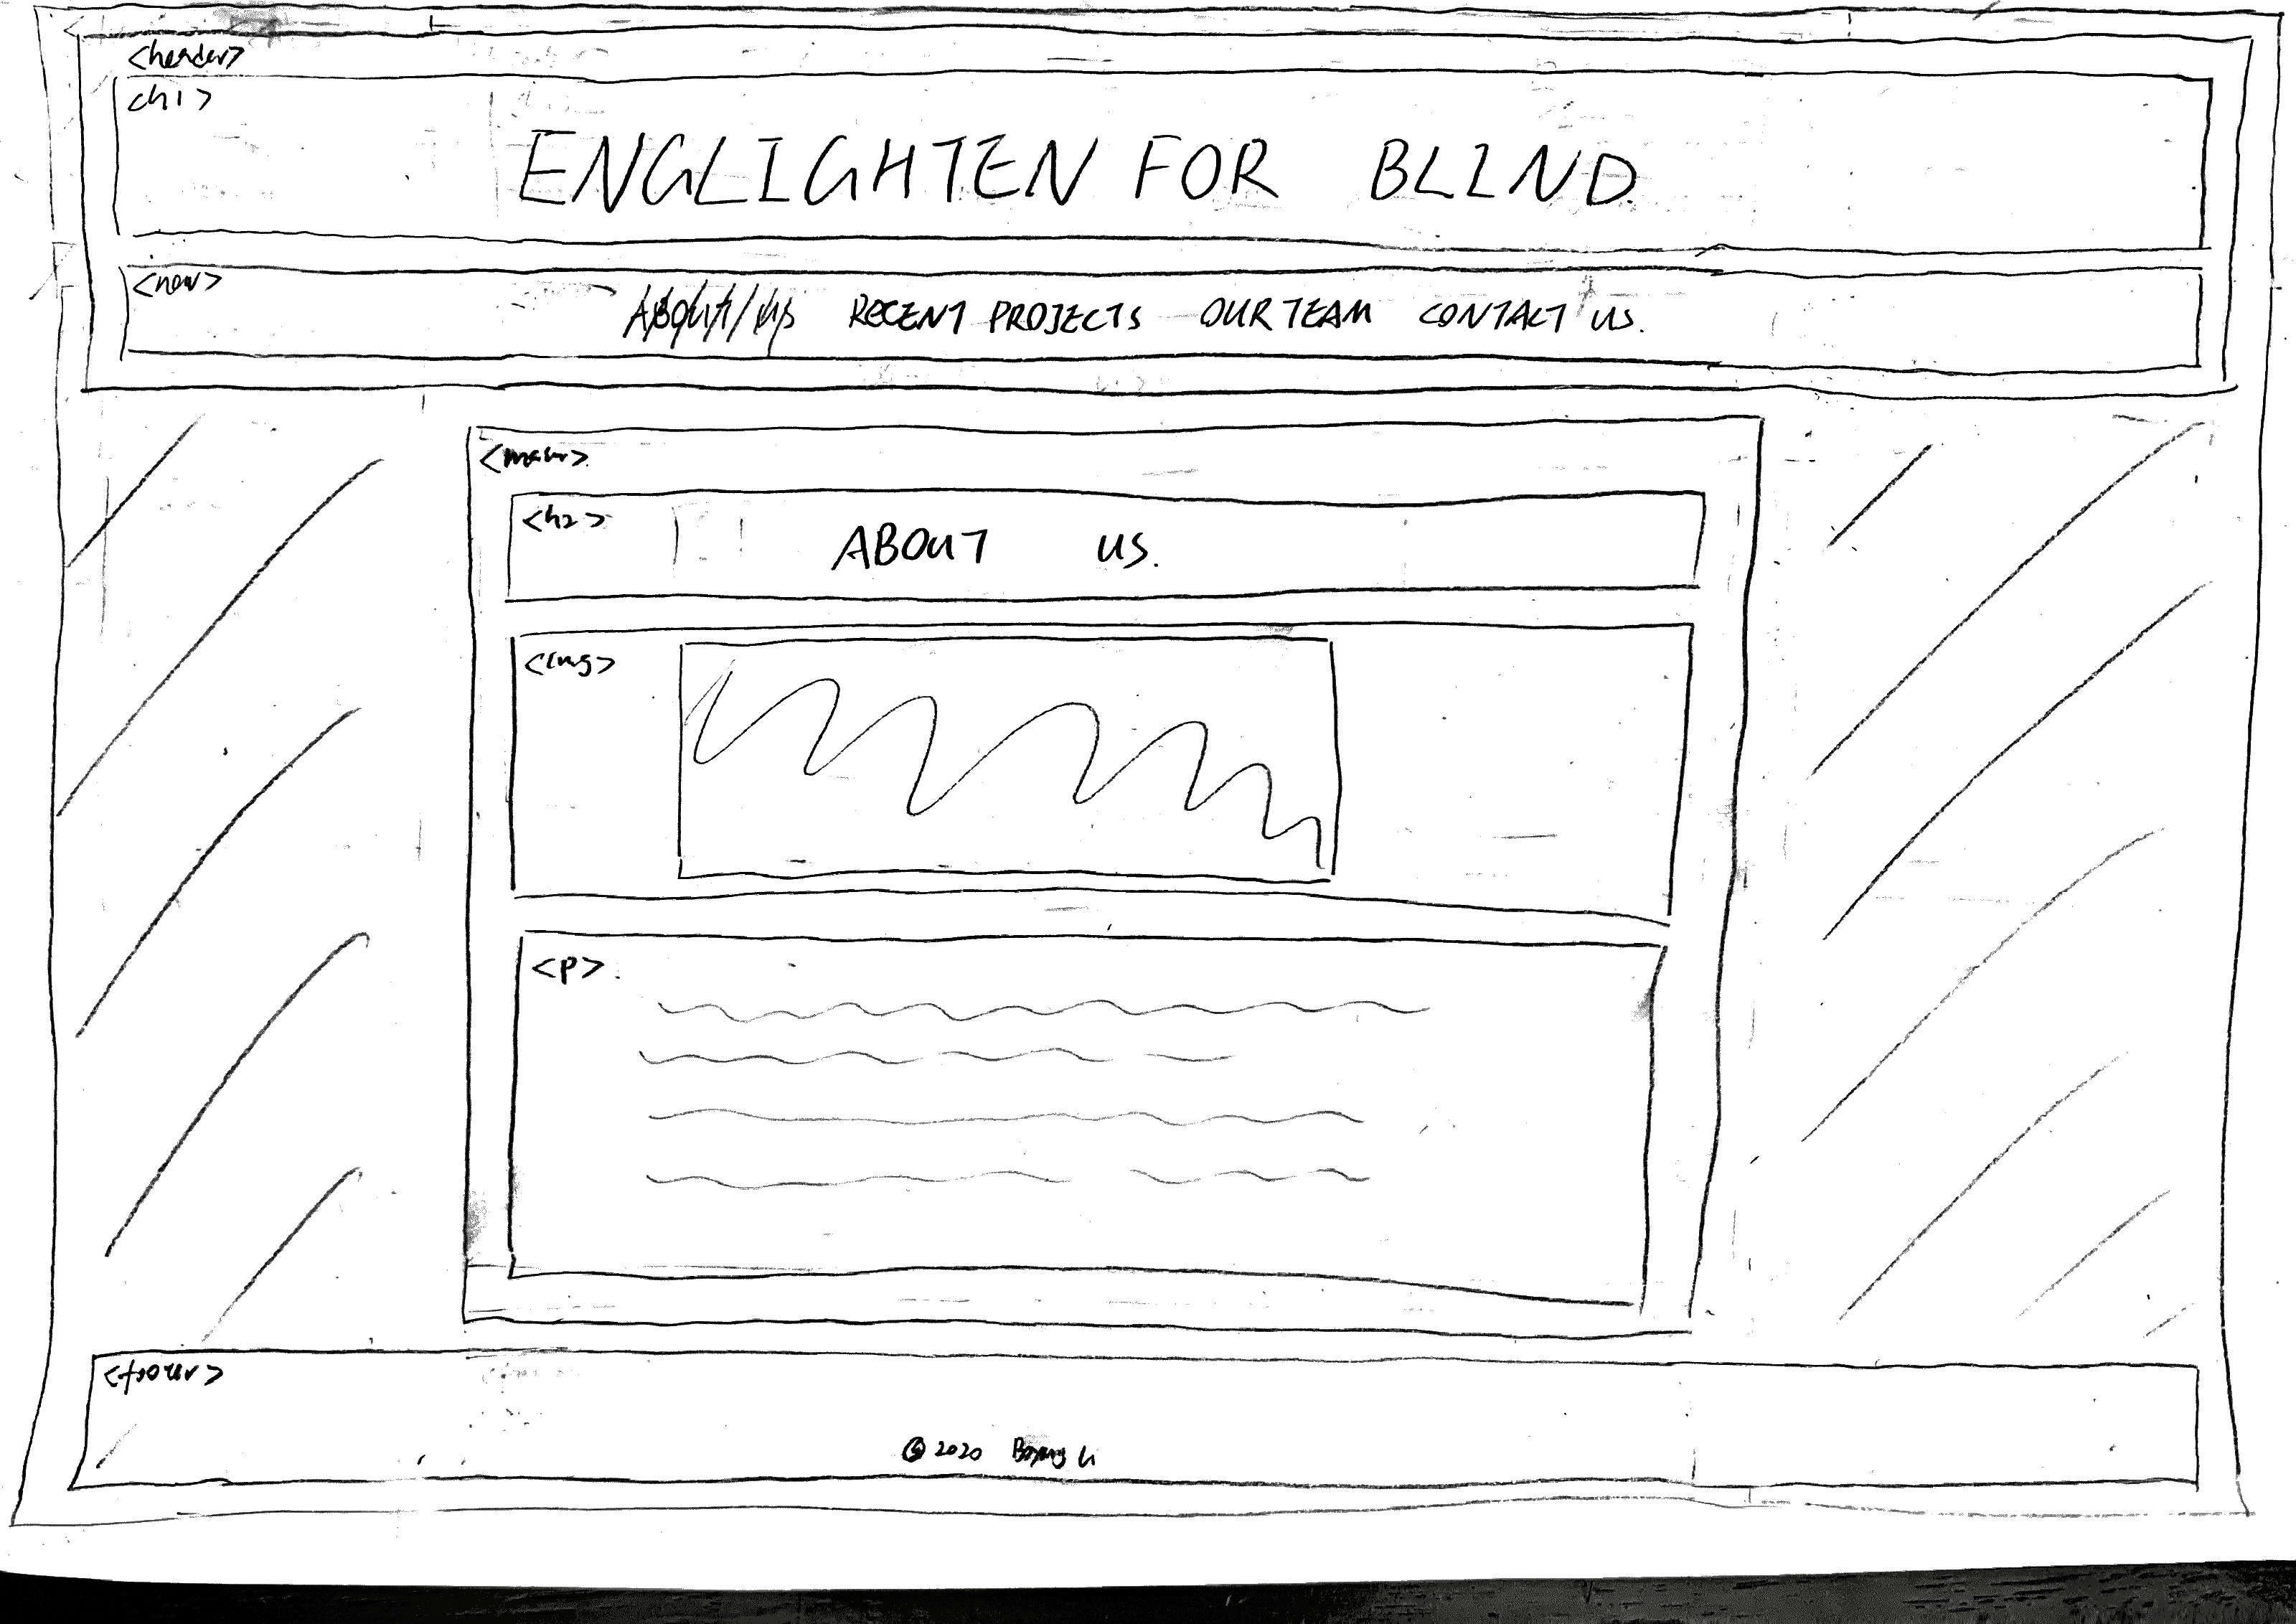 <header>
<h1>
ENGLIGHTEN FOR BLIND.
<nav>
ABOUT US RECENT PROJECTS OUR TEAM CONTACT US.
<main>
<h2>
ABOUT US.
<img>
<p>
<footer>
© 2020